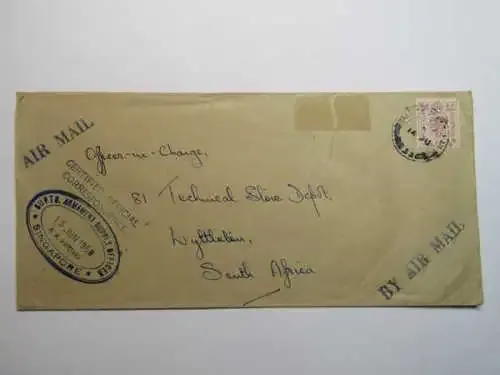 AIR MAIL
CERTIFIED OFFICIAL
CORRESPONDENCE
ARMAMENT SUPPLY OFFICER
SINGAPORE
Officer-in-Charge,
81 Technical Store Depot,
South Africa
BY AIR MAIL